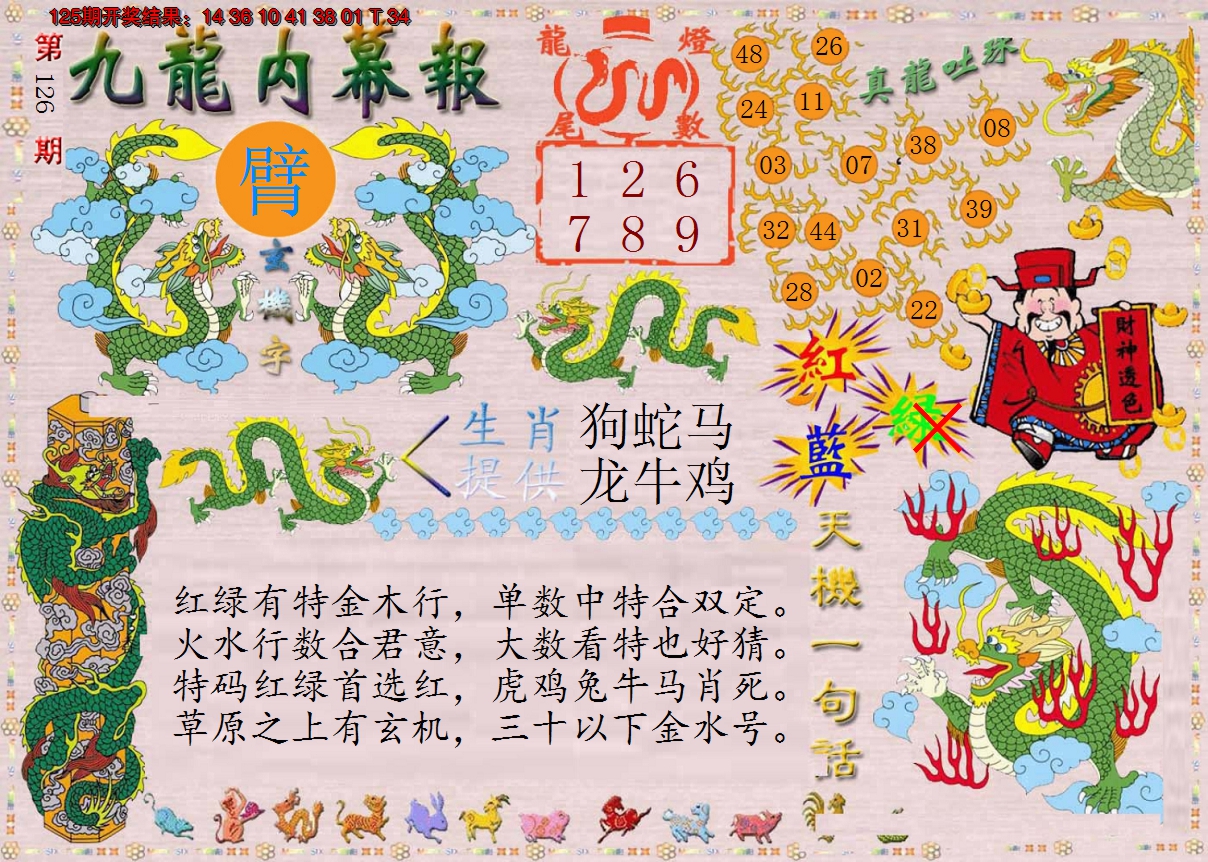 125期开奖结果：14 36 10 41 38 01 T 34
第126期
九龍内幕報
臂
玄機字
龍燈
尾數
1 2 6
7 8 9
真龍吐珠
48 26
24 11
38 08
03 07
39
32 44 31
28 02
22
紅
綠
藍
財神透色
生肖
提供
狗蛇马
龙牛鸡
天機一句話
红绿有特金木行，单数中特合双定。
火水行数合君意，大数看特也好猜。
特码红绿首选红，虎鸡兔牛马肖死。
草原之上有玄机，三十以下金水号。